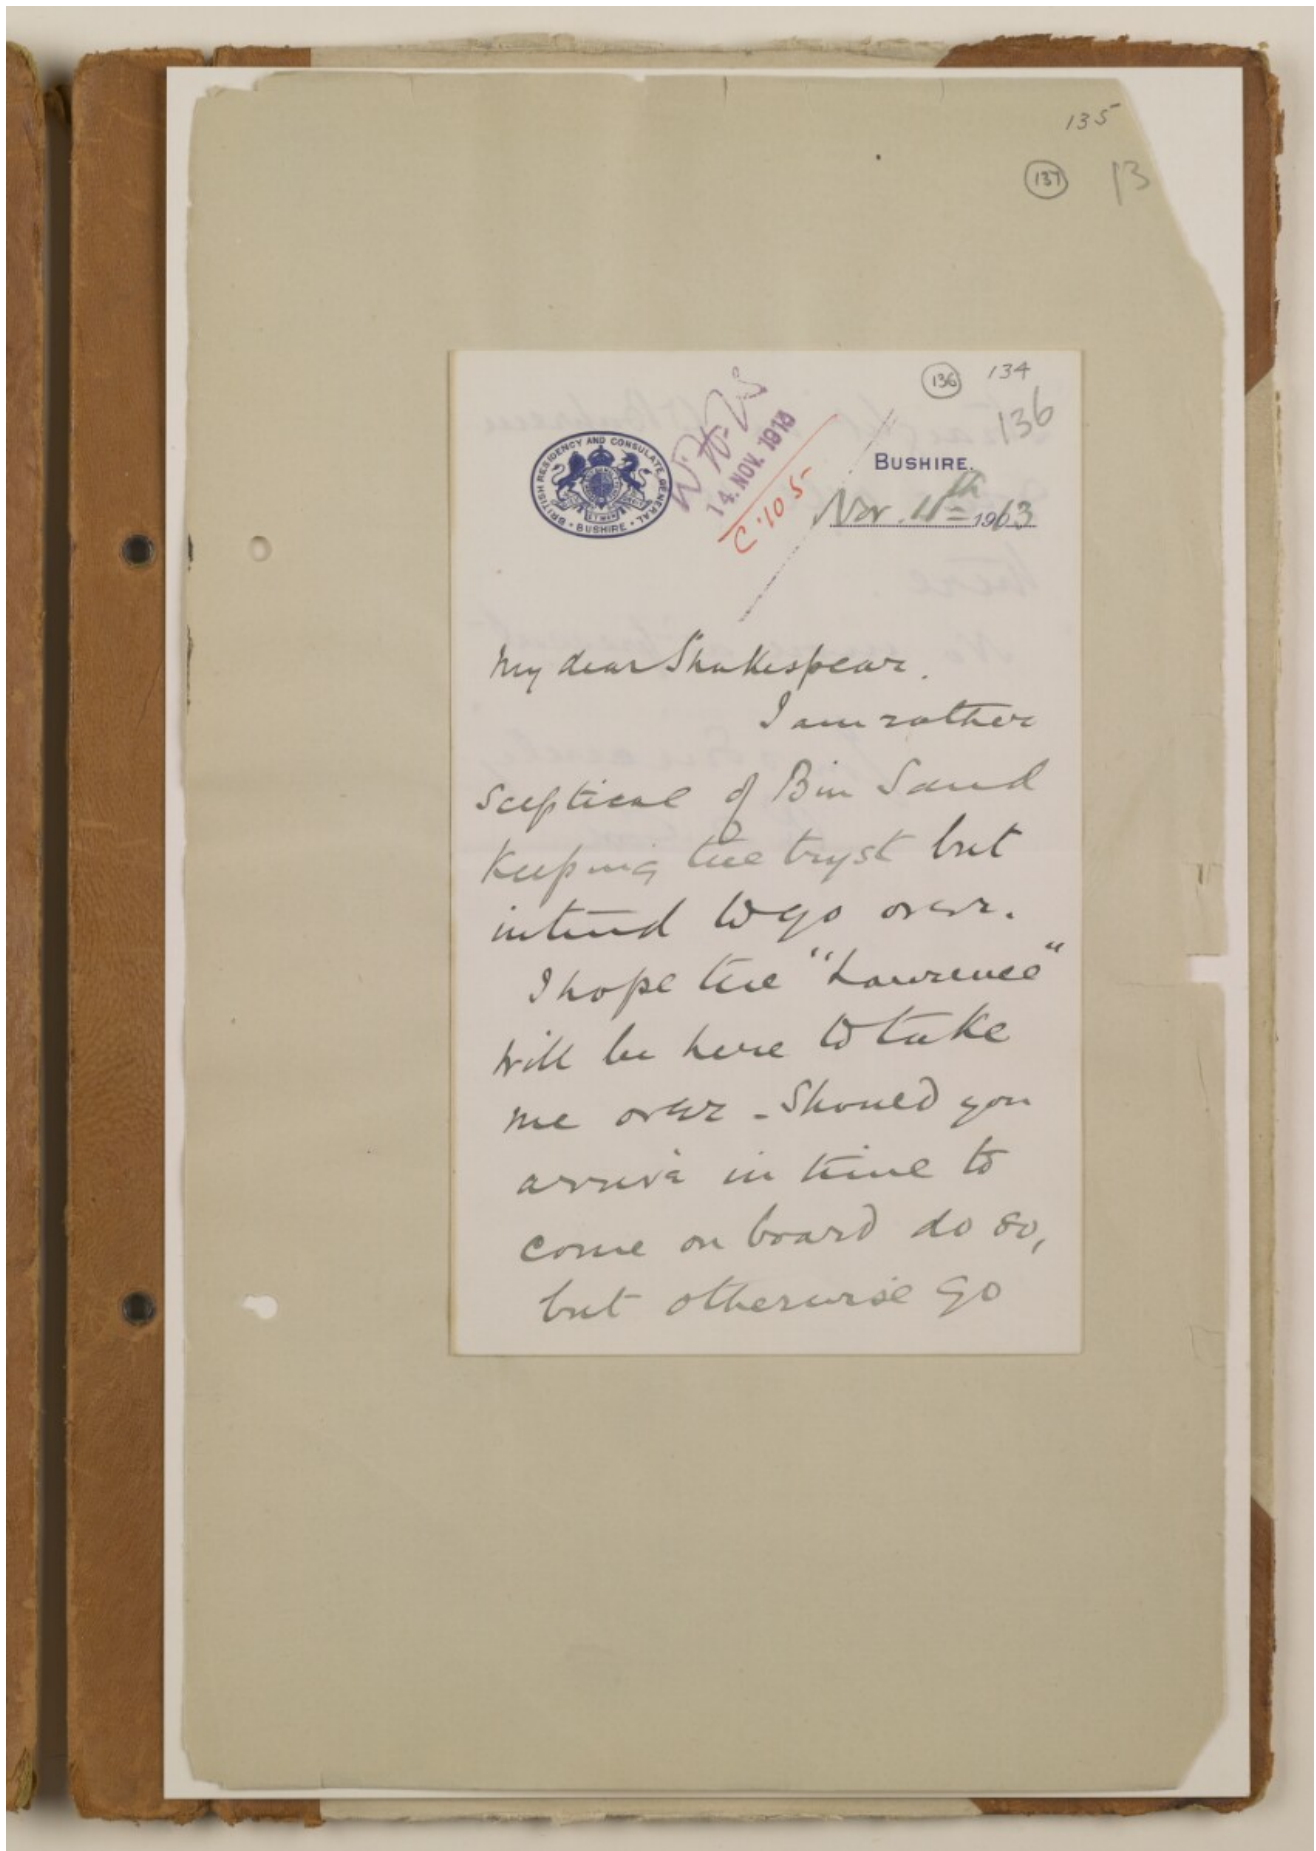 135
137 13
136 134
136
BRITISH RESIDENCY AND CONSULATE GENERAL
• BUSHIRE •
14. NOV. 1913
C.105
BUSHIRE.
Nov. 11th 1913
My dear Shakespear.
I am rather
sceptical of Bin Saud
keeping the tryst but
intend to go over.
I hope the "Lawrence"
will be here to take
me over - Should you
arrive in time to
come on board do so,
but otherwise go